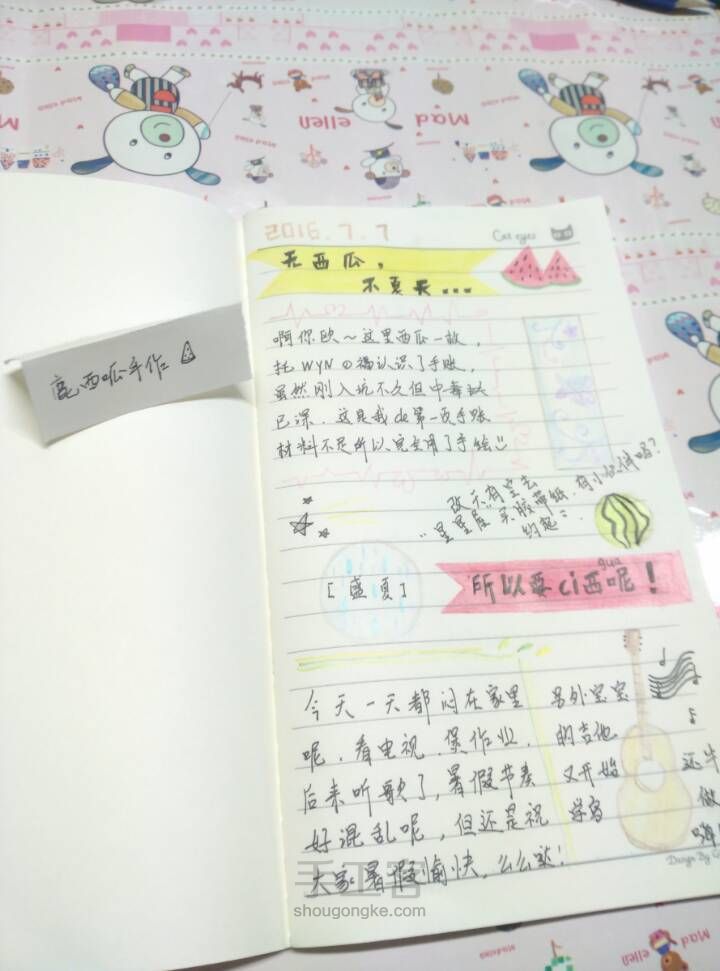 Mad ellen
2016.7.7
Cat eyes
无西瓜，
不夏天...
啊你欧～这里西瓜一枚，
托WYN的福认识了手账，
虽然刚入坑不久但中毒
已深．这是我de第一页手账
材料不足所以完全用了手绘
西呱手作
改天有空去
"星星屋"买胶带纸．有小伙伴吗？
约起
[盛夏]
gua
所以要ci西呢！
今天一天都闷在家里
呢．看电视．煲作业．
后来听歌了，暑假节奏
好混乱呢，但还是祝
大家暑假愉快．么么哒！
另外宝宝
的吉他
又开始
学
还
做
嗨
Design By
手工客
shougongke.com